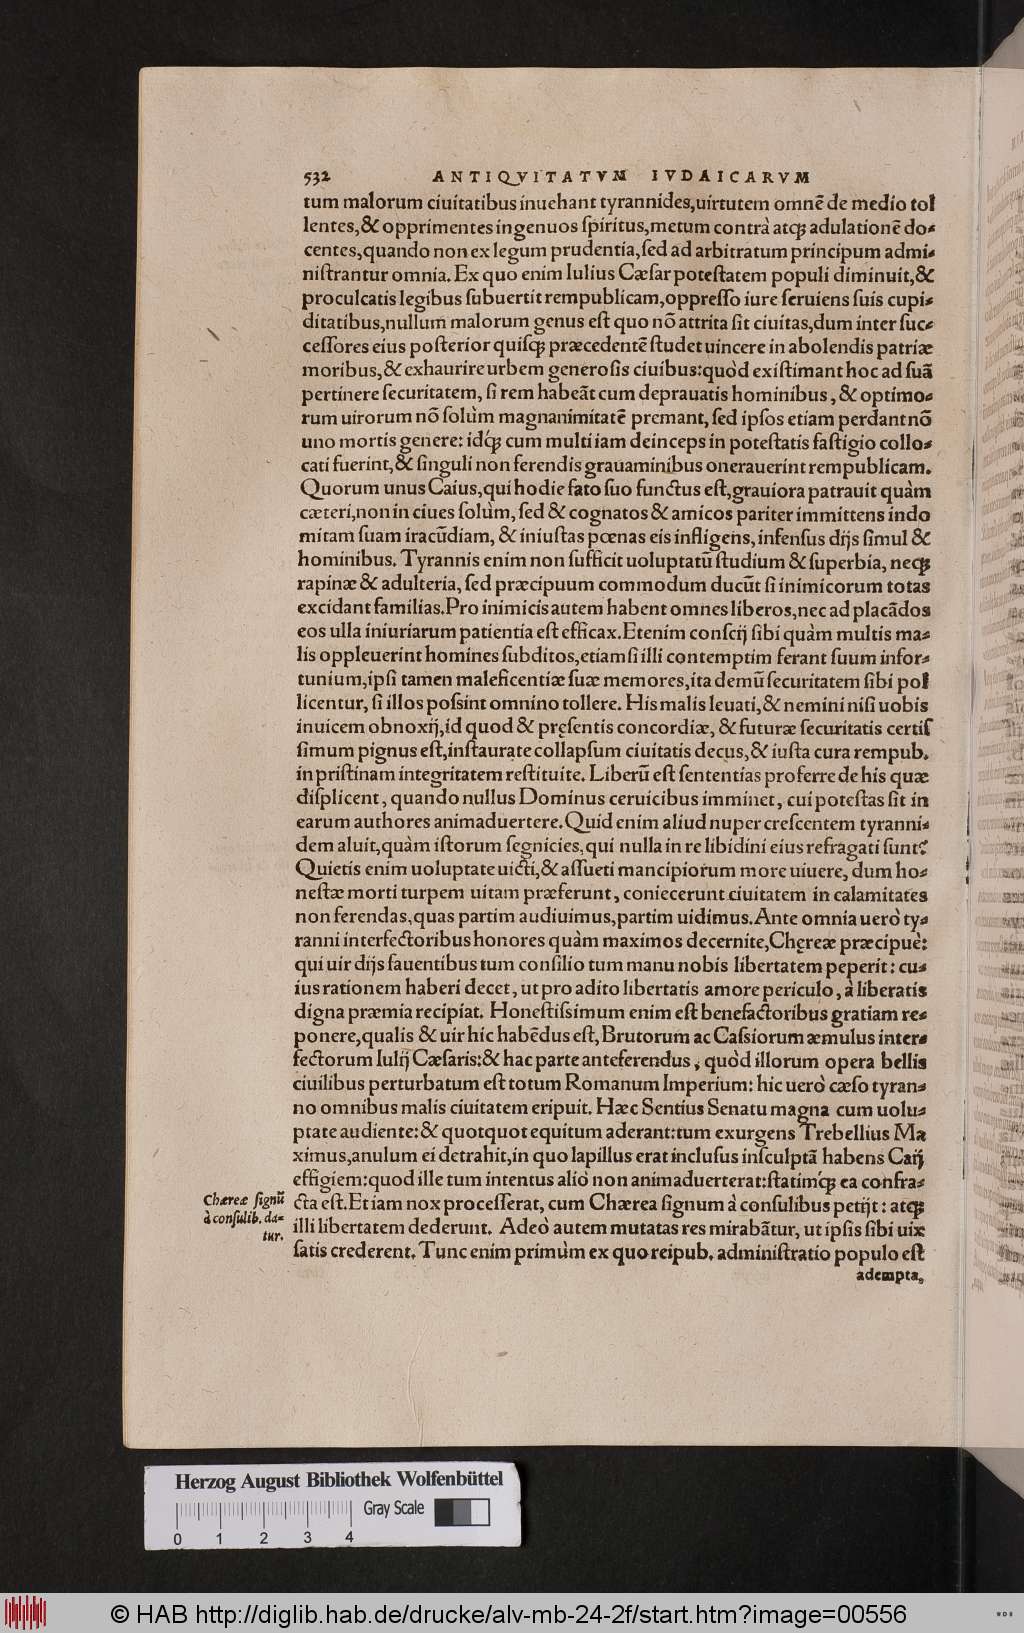 532 ANTIQVITATVM IVDAICARVM
tum malorum ciuitatibus inuehant tyrannides,uirtutem omnẽ de medio tol
lentes,& opprimentes ingenuos ſpiritus,metum contrà atq; adulationẽ do-
centes,quando non ex legum prudentia,ſed ad arbitratum principum admi-
niſtrantur omnia. Ex quo enim Iulius Cæſar poteſtatem populi diminuit,&
proculcatis legibus ſubuertit rempublicam,oppreſſo iure ſeruiens ſuis cupi-
ditatibus,nullum malorum genus eſt quo nõ attrita ſit ciuitas,dum inter ſuc-
ceſſores eius poſterior quiſq; præcedentẽ ſtudet uincere in abolendis patriæ
moribus,& exhaurire urbem generoſis ciuibus:quòd exiſtimant hoc ad ſuã
pertinere ſecuritatem, ſi rem habeãt cum deprauatis hominibus, & optimo-
rum uirorum nõ ſolùm magnanimitatẽ premant,ſed ipſos etiam perdant nõ
uno mortis genere: idq́; cum multi iam deinceps in poteſtatis faſtigio collo-
cati fuerint,& ſinguli non ferendis grauaminibus onerauerint rempublicam.
Quorum unus Caius,qui hodie fato ſuo functus eſt,grauiora patrauit quàm
cæteri,non in ciues ſolùm, ſed & cognatos & amicos pariter immittens indo
mitam ſuam iracũdiam, & iniuſtas pœnas eis infligens, infenſus dijs ſimul &
hominibus. Tyrannis enim non ſufficit uoluptatũ ſtudium & ſuperbia, neq;
rapinæ & adulteria, ſed præcipuum commodum ducũt ſi inimicorum totas
excidant familias.Pro inimicis autem habent omnes liberos,nec ad placãdos
eos ulla iniuriarum patientia eſt efficax.Etenim conſcij ſibi quàm multis ma-
lis oppleuerint homines ſubditos,etiamſi illi contemptim ferant ſuum infor-
tunium,ipſi tamen maleficentiæ ſuæ memores,ita demũ ſecuritatem ſibi pol
licentur, ſi illos poſsint omnino tollere. His malis leuati,& nemini niſi uobis
inuicem obnoxij,id quod & pręſentis concordiæ, & futuræ ſecuritatis certiſ
ſimum pignus eſt,inſtaurate collapſum ciuitatis decus,& iuſta cura rempub.
in priſtinam integritatem reſtituite. Liberũ eſt ſententias proferre de his quæ
diſplicent, quando nullus Dominus ceruicibus imminet, cui poteſtas ſit in
earum authores animaduertere.Quid enim aliud nuper creſcentem tyranni-
dem aluit,quàm iſtorum ſegnicies,qui nulla in re libidini eius refragati ſunt?
Quietis enim uoluptate uicti,& aſſueti mancipiorum more uiuere, dum ho-
neſtæ morti turpem uitam præferunt, coniecerunt ciuitatem in calamitates
non ferendas,quas partim audiuimus,partim uidimus.Ante omnia uerò ty-
ranni interfectoribus honores quàm maximos decernite,Chęreæ præcipuè:
qui uir dijs fauentibus tum conſilio tum manu nobis libertatem peperit: cu-
ius rationem haberi decet, ut pro adito libertatis amore periculo, à liberatis
digna præmia recipiat. Honeſtiſsimum enim eſt benefactoribus gratiam re-
ponere,qualis & uir hic habẽdus eſt,Brutorum ac Caſsiorum æmulus inter-
fectorum Iulij Cæſaris:& hac parte anteferendus, quòd illorum opera bellis
ciuilibus perturbatum eſt totum Romanum Imperium: hic uerò cæſo tyran-
no omnibus malis ciuitatem eripuit. Hæc Sentius Senatu magna cum uolu-
ptate audiente:& quotquot equitum aderant:tum exurgens Trebellius Ma
ximus,anulum ei detrahit,in quo lapillus erat incluſus inſculptã habens Caij
effigiem:quod ille tum intentus aliò non animaduerterat:ſtatimq́; ea confra-
cta eſt.Et iam nox proceſſerat, cum Chærea ſignum à conſulibus petijt: atq;
illi libertatem dederunt. Adeò autem mutatas res mirabãtur, ut ipſis ſibi uix
ſatis crederent. Tunc enim primùm ex quo reipub. adminiſtratio populo eſt
adempta,
Chæreæ ſignũ
à conſulib. da-
tur.
Herzog August Bibliothek Wolfenbüttel
Gray Scale
0 1 2 3 4
© HAB http://diglib.hab.de/drucke/alv-mb-24-2f/start.htm?image=00556